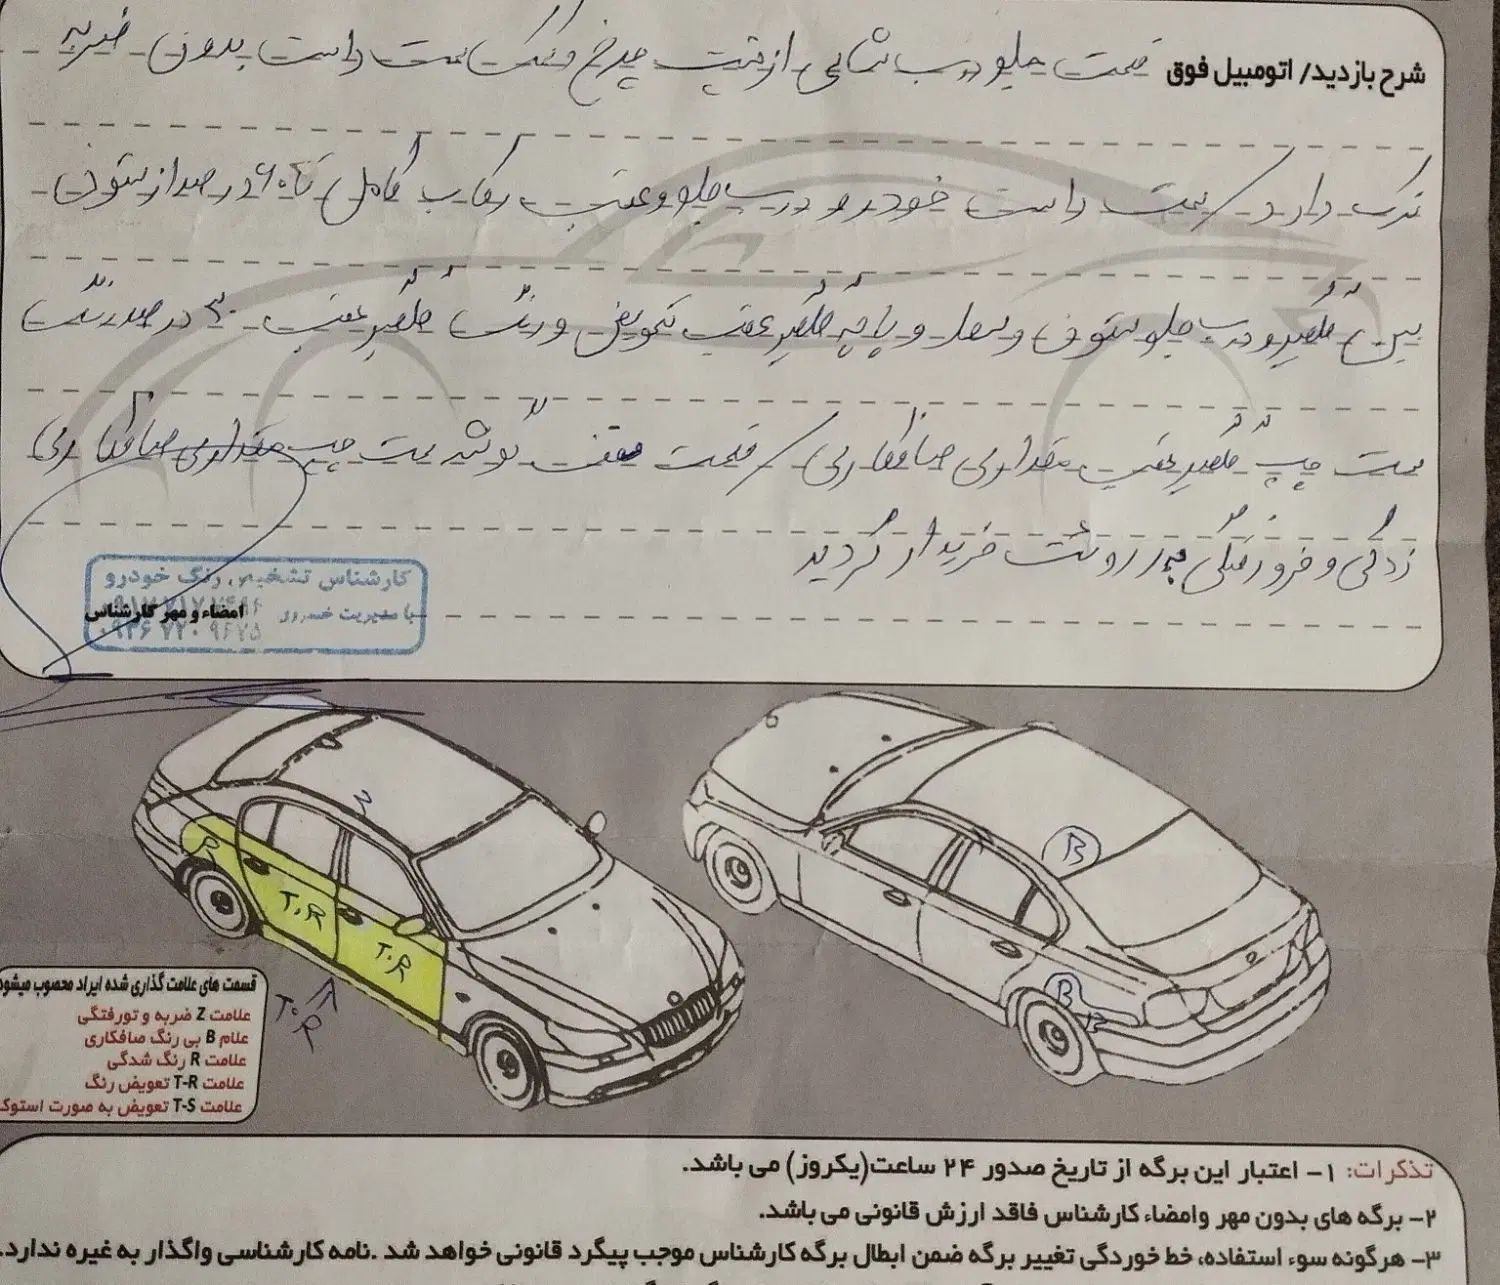 شرح بازدید/ اتومبیل فوق قسمت جلو درب شاسی از قسمت چرخ و سمت راست بدون ضربه
ترک دارد سمت راست خودرو درب جلو و عقب رکاب کامل تا ۶۰ درصد از ستون
بین گلگیر و درب جلو ستون وسط و پاچه گلگیر عقب تعویض و رنگ گلگیر عقب ۳۰ درصد رنگ
سمت چپ گلگیر عقب مقداری صافکاری قسمت سقف گوشه سمت چپ مقداری صافکاری
زدگی و فرورفتگی به رویت خریدار گردید
کارشناس تشخیص رنگ خودرو
با مدیریت خسروی
امضاء و مهر کارشناس
Z
R
T.R
T.R
T.R
B
B
قسمت های علامت گذاری شده ایراد محصوب میشود
علامت Z ضربه و تورفتگی
علام B بی رنگ صافکاری
علامت R رنگ شدگی
علامت T-R تعویض رنگ
علامت T-S تعویض به صورت استوک
تذکرات: ۱- اعتبار این برگه از تاریخ صدور ۲۴ ساعت(یکروز) می باشد.
۲- برگه های بدون مهر وامضاء کارشناس فاقد ارزش قانونی می باشد.
۳- هرگونه سوء استفاده، خط خوردگی تغییر برگه ضمن ابطال برگه کارشناس موجب پیگرد قانونی خواهد شد .نامه کارشناسی واگذار به غیره ندارد.